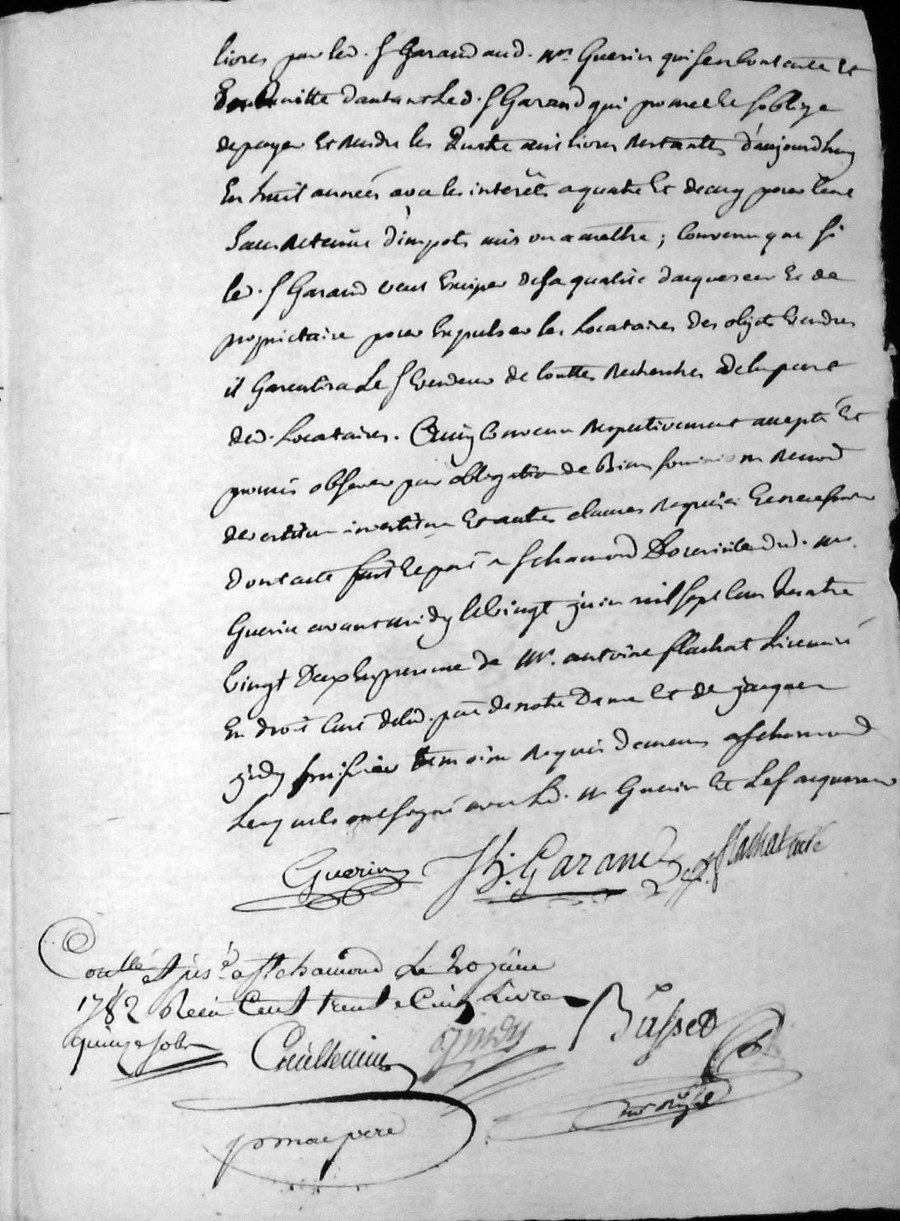 livres par led. S Garand aud. Mr Guerin qui sen contente et
quitte d'autant led. S Garand qui promet et soblige
de payer et rendre les quatre mil livres restantes d'aujourdhuy
En huit années avec les interêts a quatre et demy pour Cent
sans retenüe d'impots mis ou a mettre ; Convenu que si
led. S Garand veut Exciper de sa qualité dacquereur et de
proprietaire pour Expulser les Locataires des objets vendus
il Garentira Le S vendeur de touttes Recherches de la part
desd. Locataires. Ainsy Convenu respectivement accepté Et
promis observer par obligation de Biens soumission Renon
devestiture investiture Et autres clauses Requises
dont acte fait et passé a St chamond Domicile dud. Mr.
Guerin avant midy le vingt juin mil sept Cent quatre
vingt Deux En presence de Mr. antoine flachat Licentié
En droit Curé de lad. parr de notre Dame Et de jacques
temoins Requis demeurs a St chamond
Lesquels ont signé avec led. Mr Guerin Et Led. S acquereur
Guerin J B. Garand flachat curé
Coullé et jns.é a St chamond Le
1782 Recu Cent trente Cinq Livres
quinze sols
Bussod